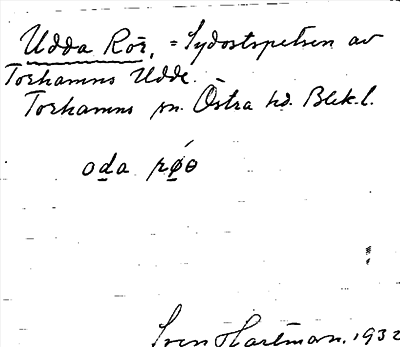 Udda Rör, = Sydostspetsen av
Torhamns Udde.
Torhamns sn. Östra hd. Blek.l.
oda røə
Sven Hartman. 1932